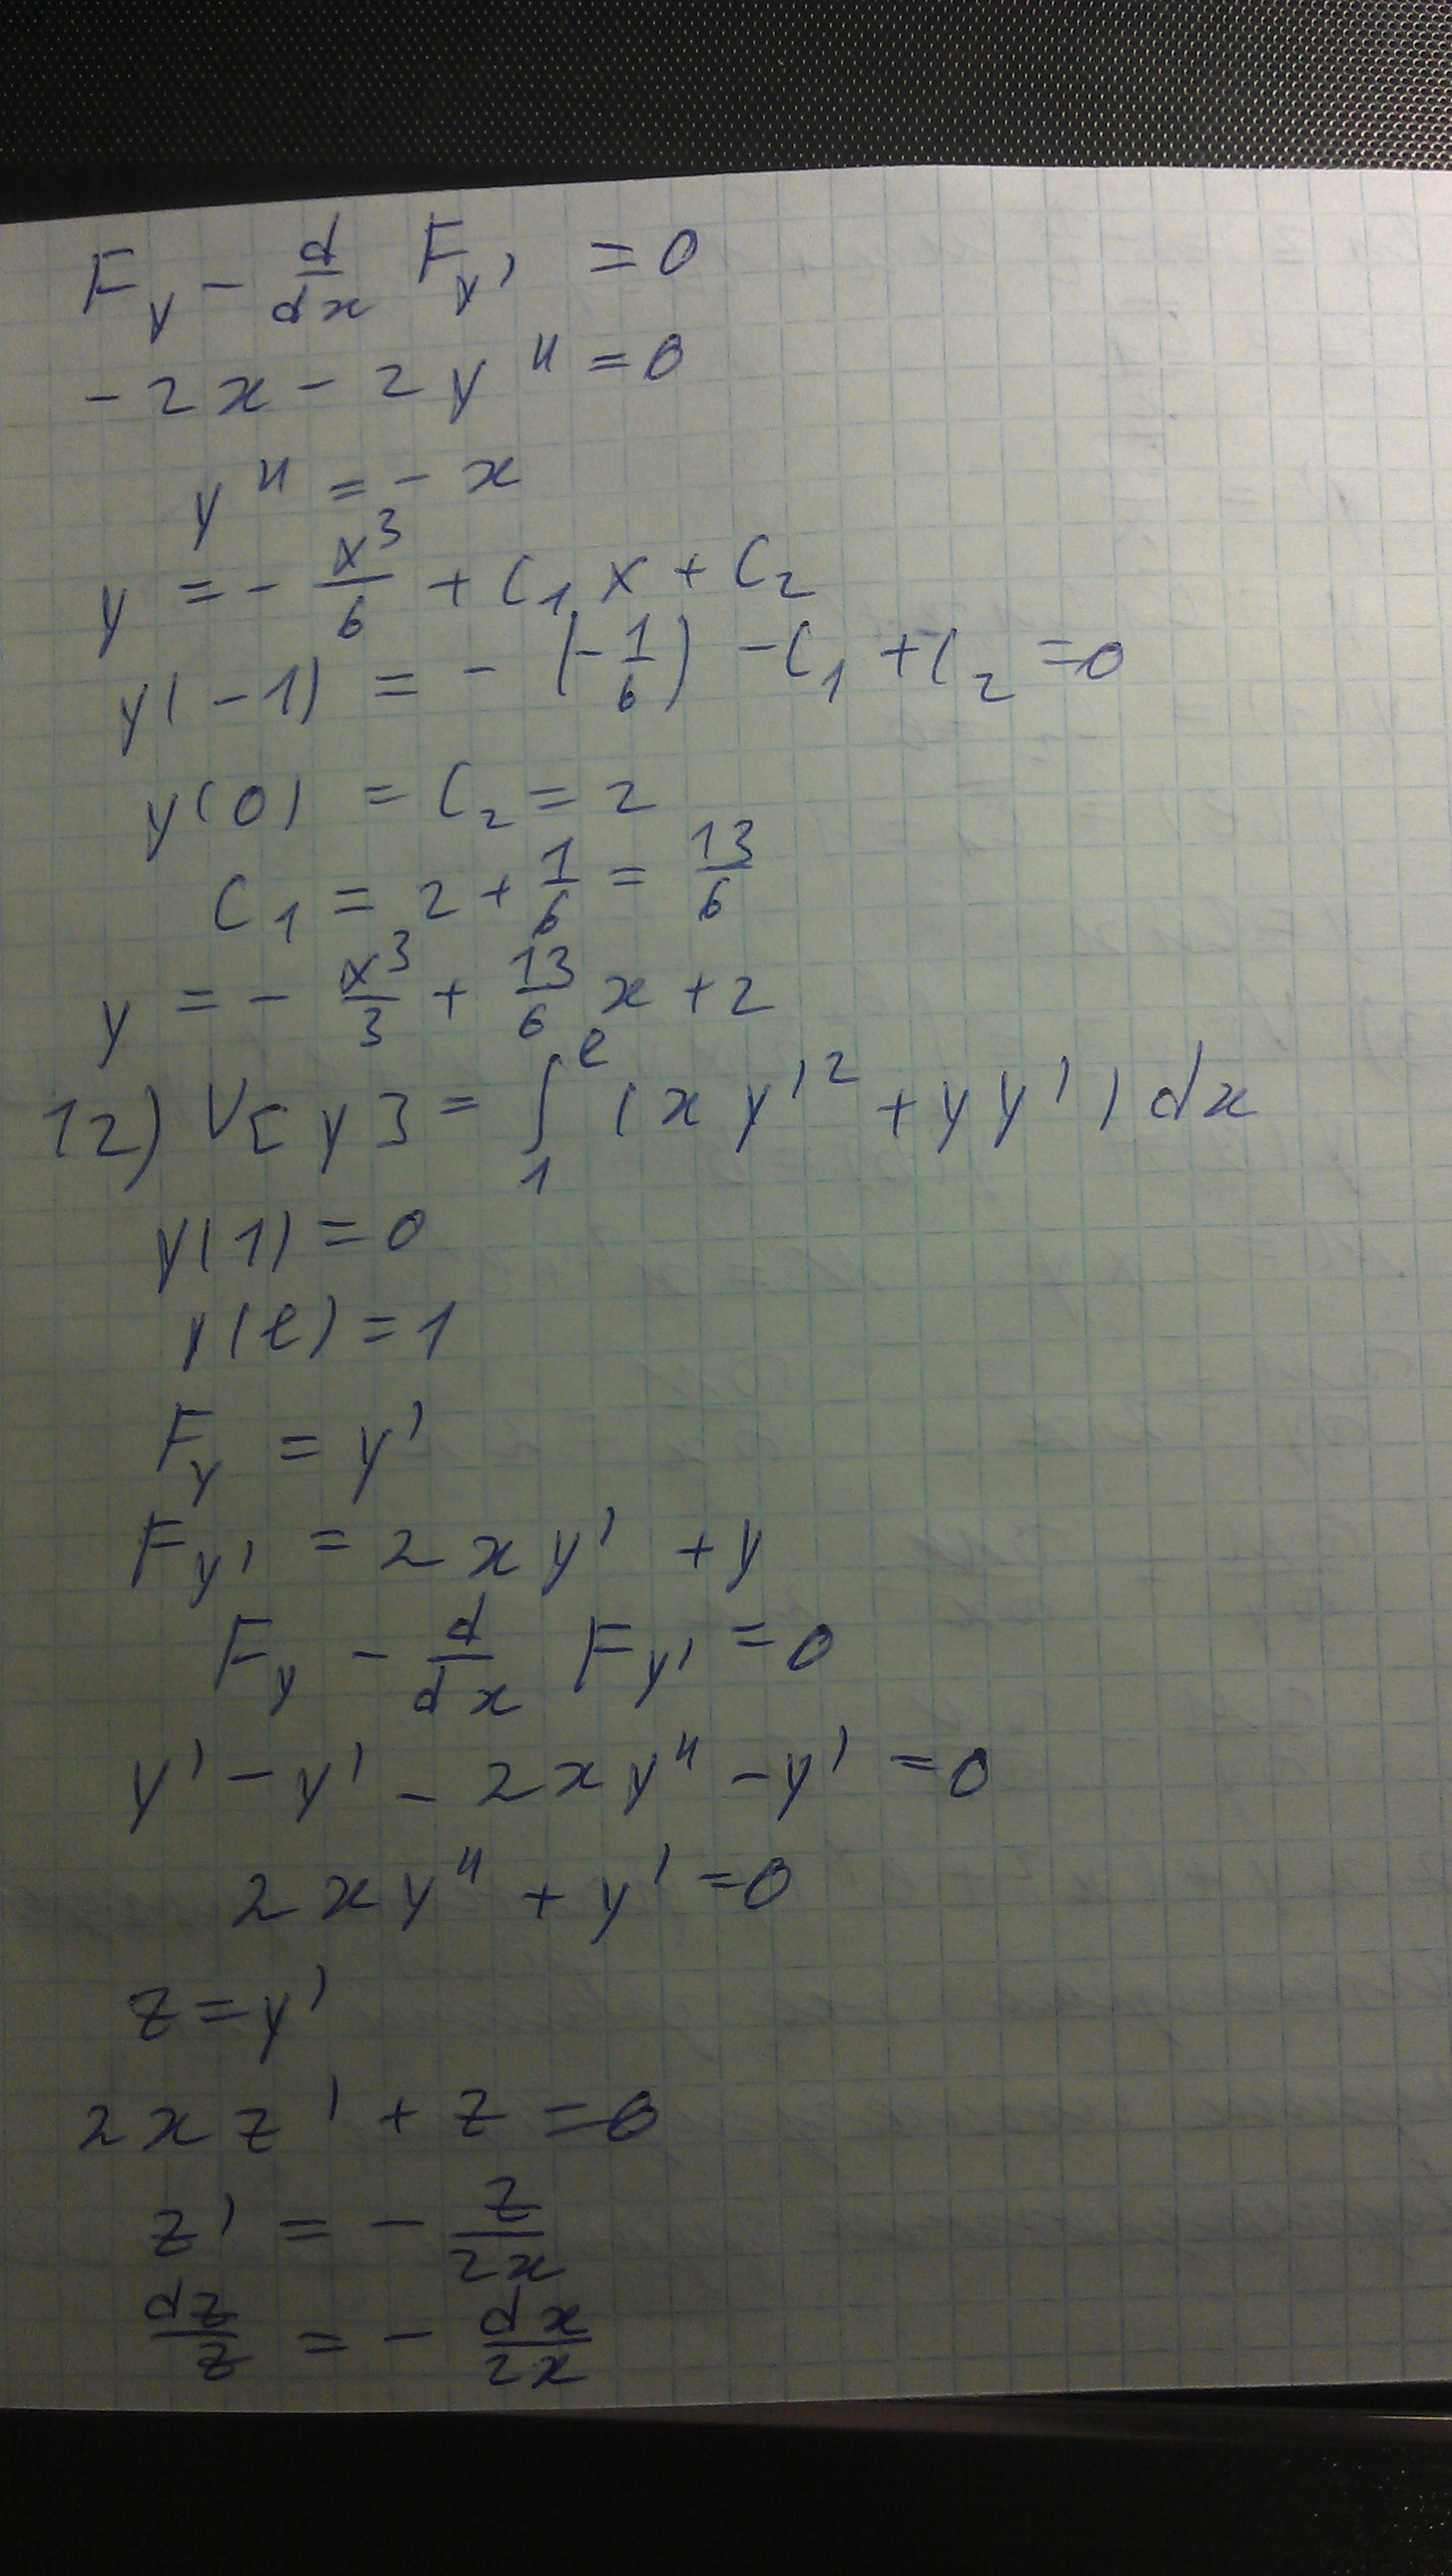 F_y - \frac{d}{dx} F_{y'} = 0
-2x - 2y'' = 0
y'' = -x
y = -\frac{x^3}{6} + C_1 x + C_2
y(-1) = -(-\frac{1}{6}) - C_1 + C_2 = 0
y(0) = C_2 = 2
C_1 = 2 + \frac{1}{6} = \frac{13}{6}
y = -\frac{x^3}{3} + \frac{13}{6} x + 2
12) V[y] = \int_1^e (xy'^2 + yy') dx
y(1) = 0
y(e) = 1
F_y = y'
F_{y'} = 2xy' + y
F_y - \frac{d}{dx} F_{y'} = 0
y' - y' - 2xy'' - y' = 0
2xy'' + y' = 0
z = y'
2xz' + z = 0
z' = -\frac{z}{2x}
\frac{dz}{z} = -\frac{dx}{2x}